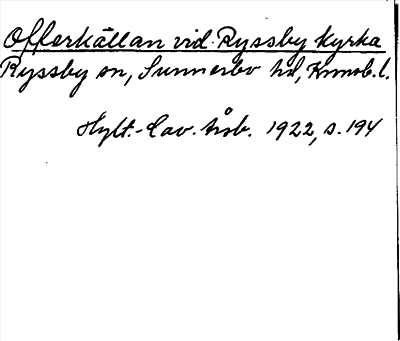 Offerkällan vid Ryssby kyrka
Ryssby sn, Sunnerbo hd, Kronob. l.
Hylt.-Cav. årsb. 1922, s. 194